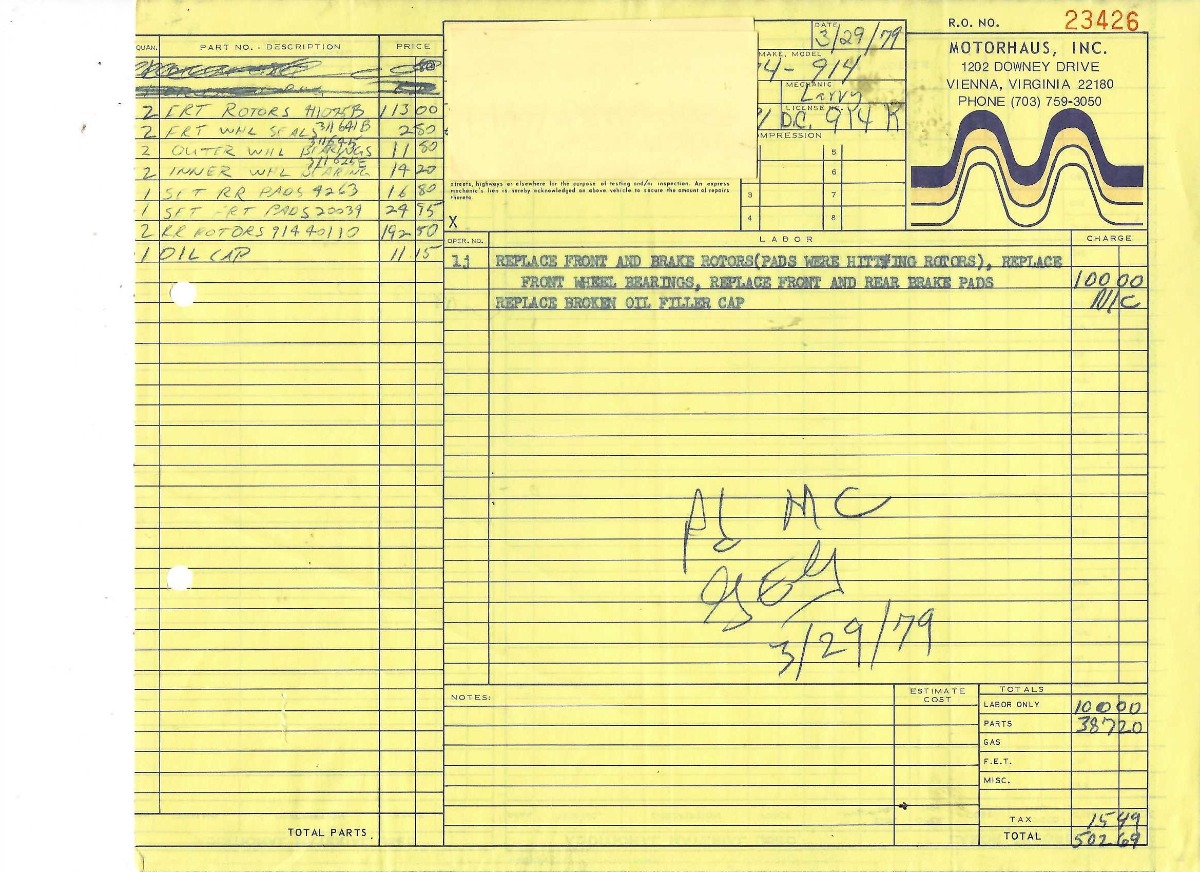 R.O. NO. 23426
MOTORHAUS, INC.
1202 DOWNEY DRIVE
VIENNA, VIRGINIA 22180
PHONE (703) 759-3050
DATE 3/29/79
MAKE, MODEL
74-914
MECHANIC
Larry
LICENSE NO.
D.C. 914 R
OMPRESSION
5
6
3 7
4 8
streets, highways or elsewhere for the purpose of testing and/or inspection. An express
mechanic's lien is hereby acknowledged on above vehicle to secure the amount of repairs
thereto.
X
QUAN. PART NO. - DESCRIPTION PRICE
2 FRT ROTORS 41025B 113 00
2 FRT WHL SEALS 311641B 2 80
2 OUTER WHL BEARINGS 11 80
2 INNER WHL BEARING 311625E 14 20
1 SET RR PADS 4263 16 80
1 SET FRT PADS 20039 24 95
2 RR ROTORS 91440110 192 50
1 OIL CAP 11 15
TOTAL PARTS
OPER. NO. LABOR CHARGE
1j REPLACE FRONT AND BRAKE ROTORS(PADS WERE HITT#ING ROTORS), REPLACE
FRONT WHEEL BEARINGS, REPLACE FRONT AND REAR BRAKE PADS 100 00
REPLACE BROKEN OIL FILLER CAP N/C
Pd MC
3/29/79
NOTES:
ESTIMATE
COST
TOTALS
LABOR ONLY 100 00
PARTS 387 20
GAS
F.E.T.
MISC.
TAX 15 49
TOTAL 502 69